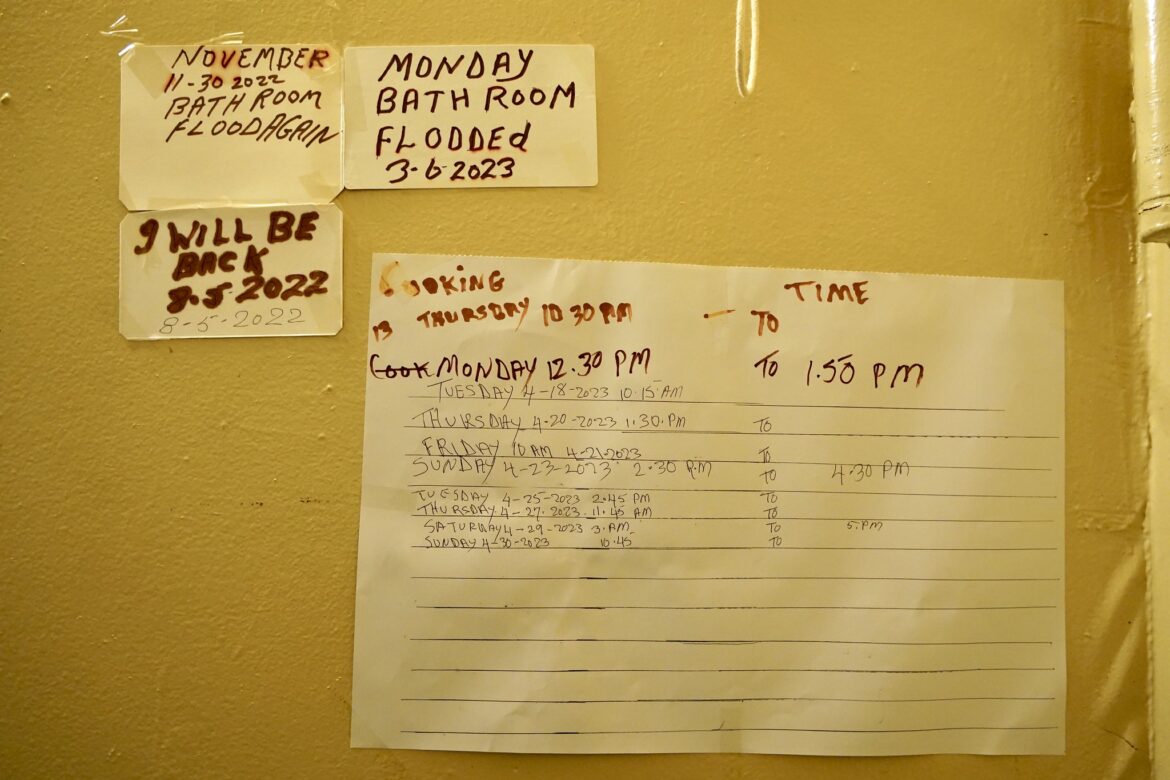 NOVEMBER
11-30 2022
BATH ROOM
FLOODAGAIN
MONDAY
BATH ROOM
FLODDEd
3-6-2023
I WILL BE
BACK
8-5-2022
8-5-2022
COOKING TIME
13 THURSDAY 10 30 AM - TO
Cook MONDAY 12.30 PM TO 1.50 PM
TUESDAY 4-18-2023 10.15 AM
THURSDAY 4-20-2023 1:30.PM TO
FRIDAY 10 AM 4-21-2023 To
SUNDAY 4-23-2023 2.30 P.M TO 4.30 PM
TUESDAY 4-25-2023 2.45 PM To
THURSDAY 4-27-2023 11.45 AM To
SATURDAY 4-29-2023 3.AM To 5.PM
SUNDAY 4-30-2023 10.45 TO